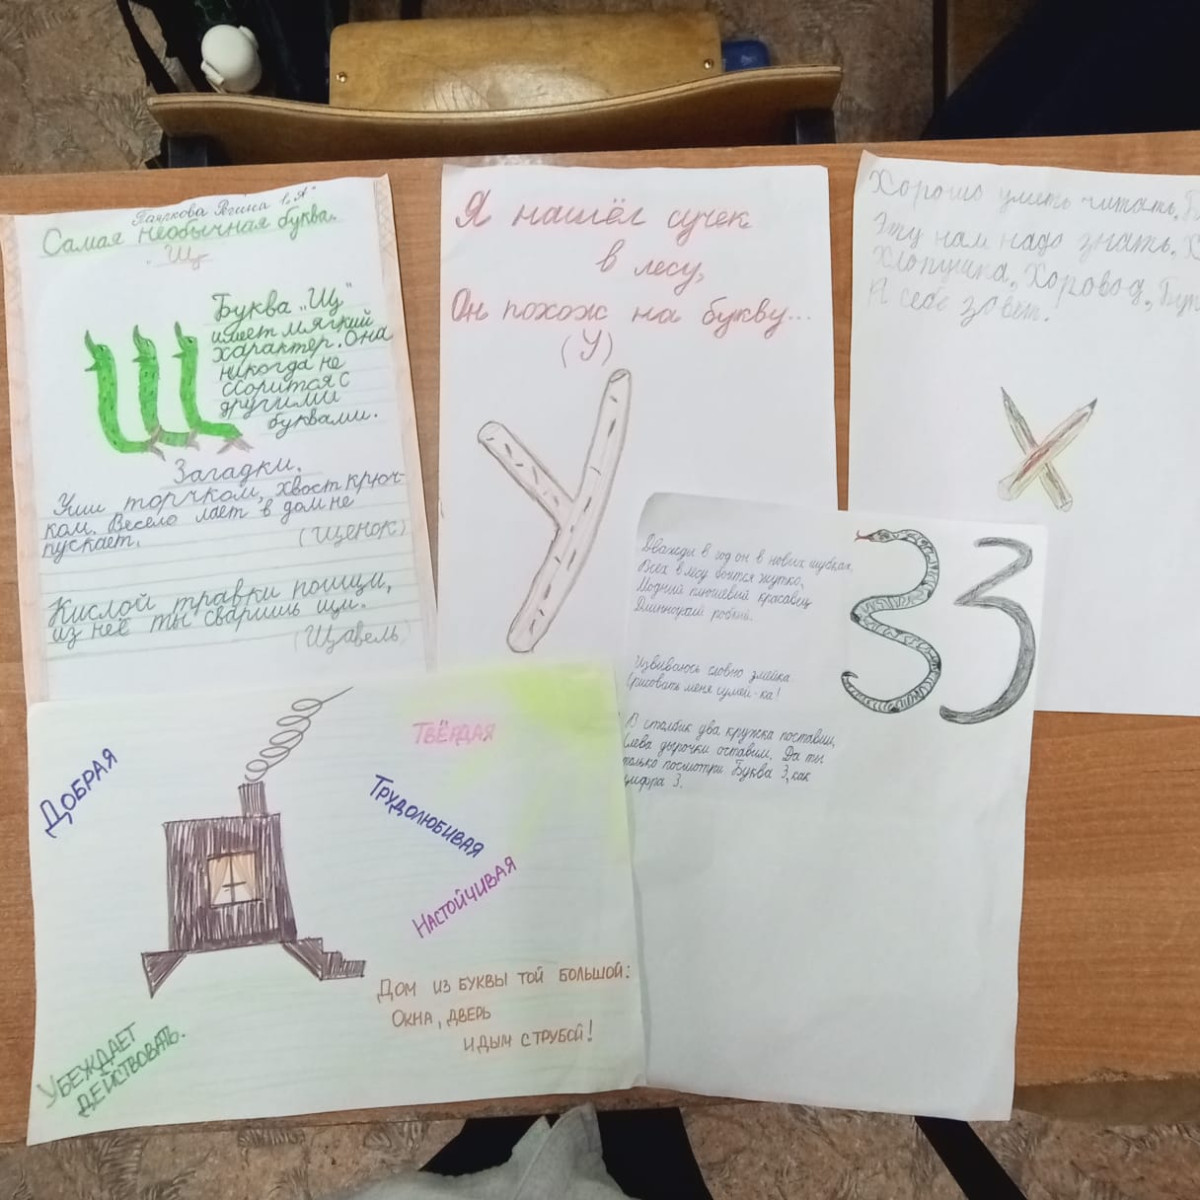 Регина 1 "А"
Самая необычная буква.
"Щ"
Буква "Щ"
имеет мягкий
характер. Она
никогда не
ссорится с
другими
буквами.
Загадки.
Уши торчком, хвост крюч-
ком. Весело лает в дом не
пускает.
(Щенок)
Кислой травки поищи,
из неё ты сваришь щи.
(Щавель)
Я нашёл сучек
в лесу,
Он похож на букву...
(У)
Хорошо уметь читать,
Эту нам надо знать.
Хлопушка, Хоровод,
К себе зовёт!
Дважды в год он в новых шубках,
Всех в лесу боится жутко,
Модный плюшевый красавец
Длинноухий робкий.
Извиваюсь словно змейка
Срисовать меня сумей-ка!
З З
В столбик два кружка поставим,
Слева дырочки оставим. Да ты
только посмотри Буква З, как
цифра 3.
Добрая
Твёрдая
Трудолюбивая
Настойчивая
Дом из буквы той большой:
окна, дверь
и дым с трубой!
Убеждает
действовать.